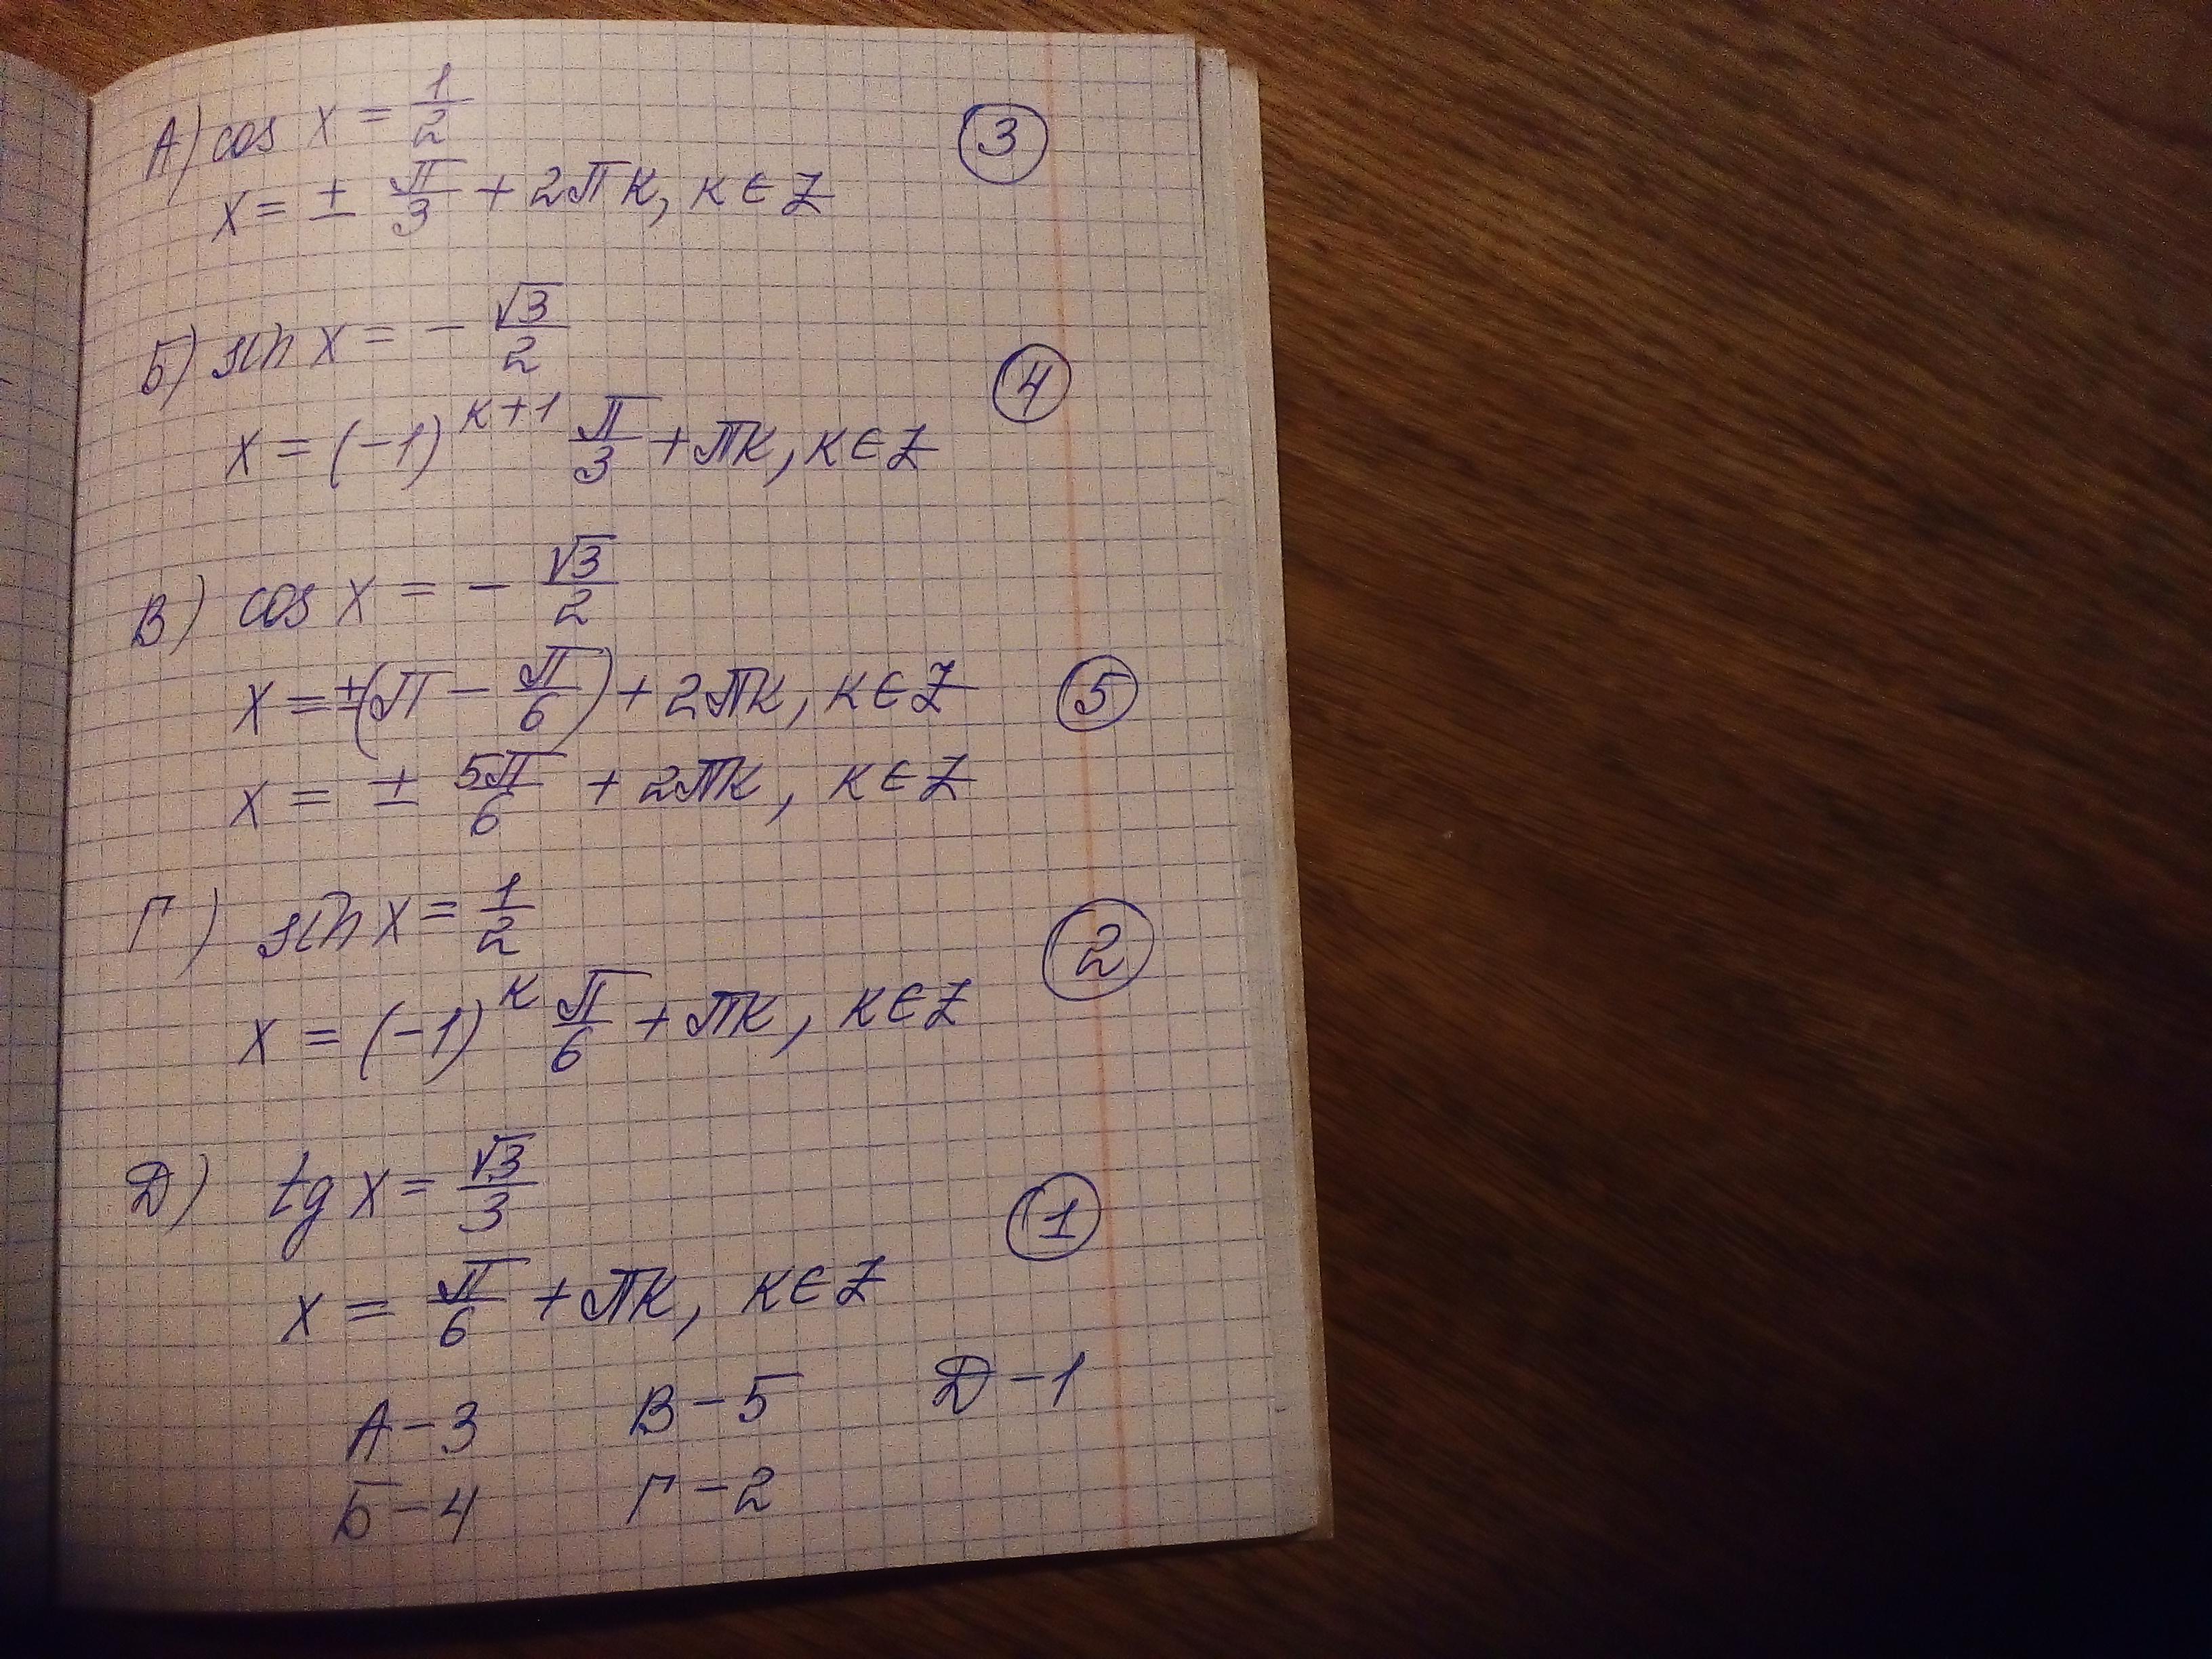 А) cos x = 1/2
③
x = ± π/3 + 2πк, к ∈ Z
Б) sin x = - √3/2
④
x = (-1)^(к+1) π/3 + πк, к ∈ Z
В) cos x = - √3/2
x = ±(π - π/6) + 2πк, к ∈ Z ⑤
x = ± 5π/6 + 2πк, к ∈ Z
Г) sin x = 1/2
②
x = (-1)^к π/6 + πк, к ∈ Z
Д) tg x = √3/3
①
x = π/6 + πк, к ∈ Z
А - 3 В - 5 Д - 1
Б - 4 Г - 2